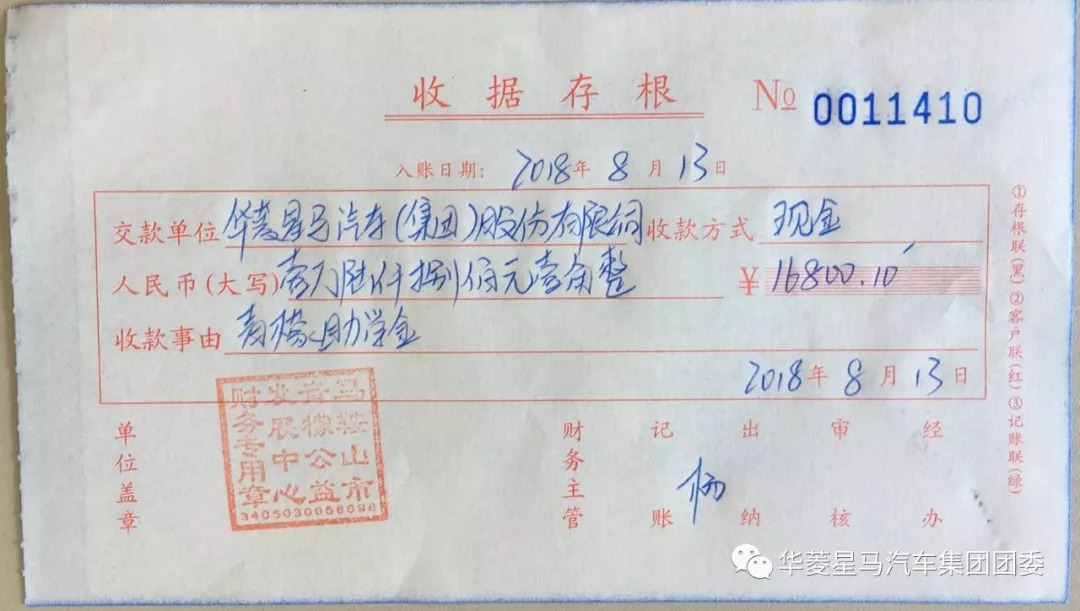 收据存根 № 0011410
入账日期: 2018年8月13日
交款单位 华菱星马汽车(集团)股份有限公司 收款方式 现金
人民币(大写) 壹万陆仟捌佰元壹角整 ¥ 16800.10
收款事由 青檬助学金
2018年8月13日
①存根联(黑)②客户联(红)③记账联(绿)
单位盖章 财务主管 记账 出纳 审核 经办
杨
马鞍山市
青檬公益
发展中心
财务专用章
3405030058698
华菱星马汽车集团团委